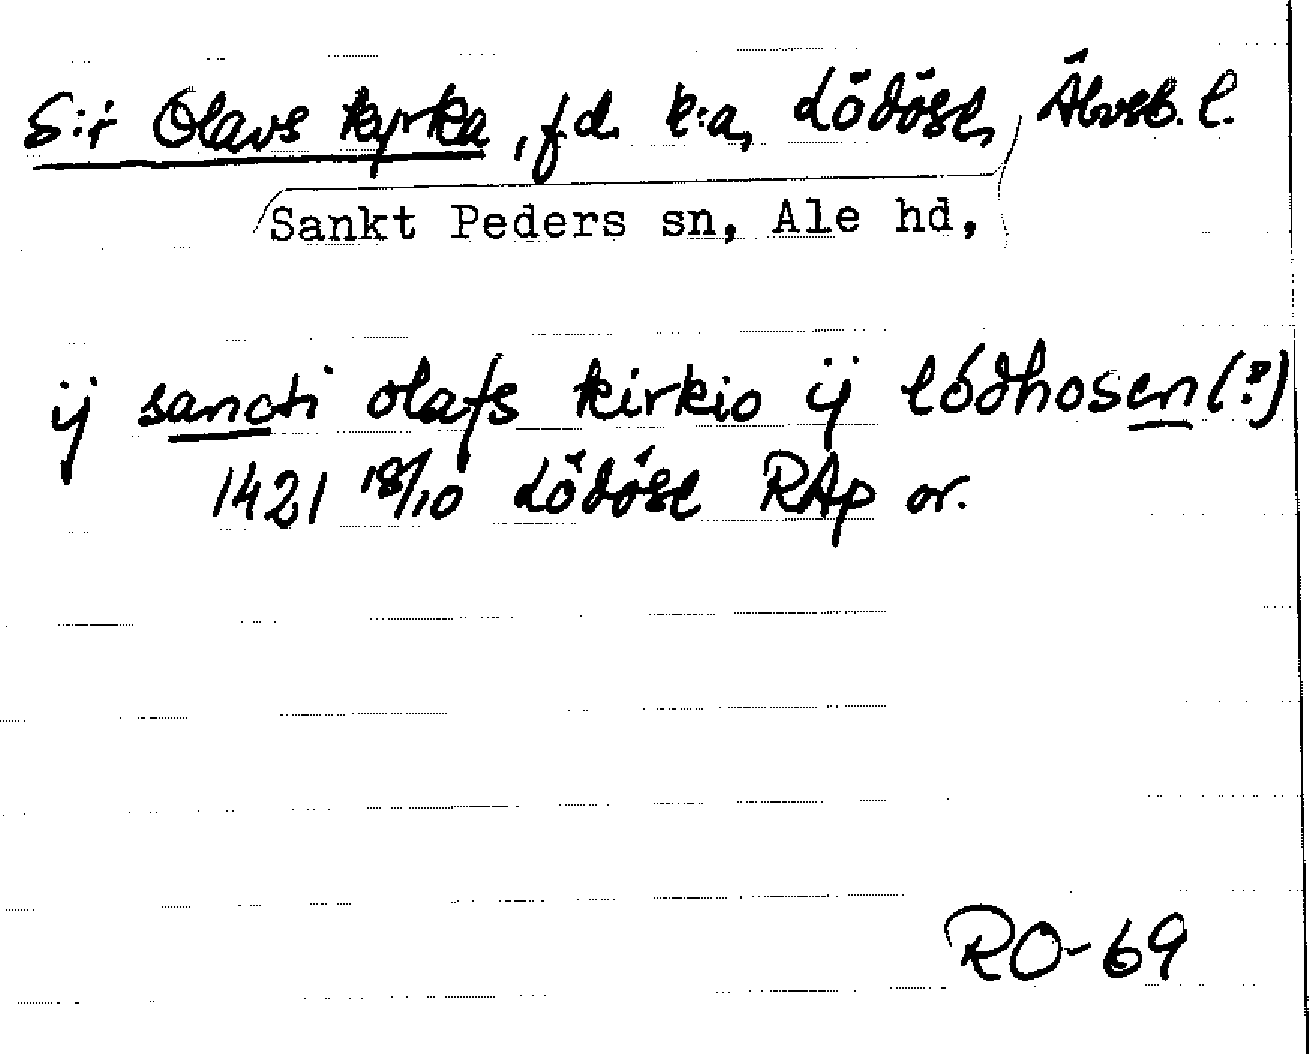 S:t Olavs kyrka, f.d. k:a, Lödöse, Älvsb. l.
Sankt Peders sn, Ale hd,
ij sancti olafs kirkio ij lódhosen (?)
1421 18/10 Lödöse RAp or.
RO-69